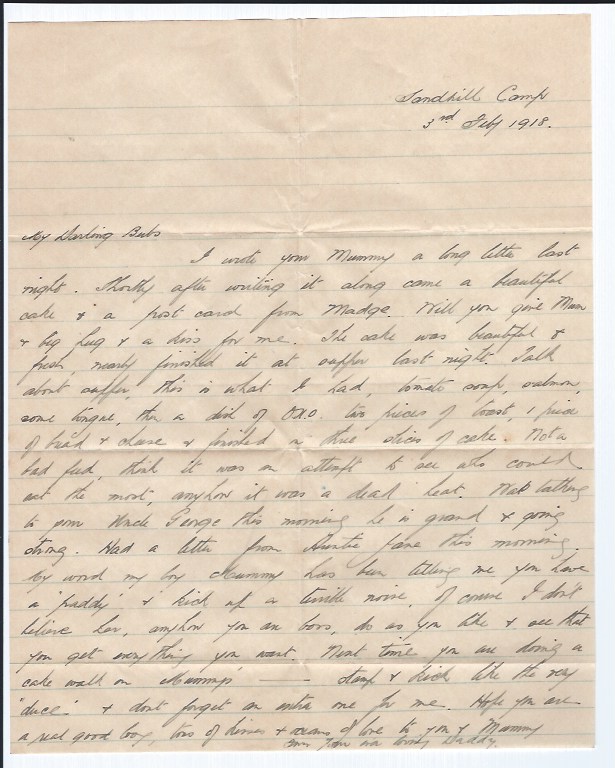 Sandhill Camp
3rd Feby 1918.
My Darling Bubs
I wrote your Mummy a long letter last
night. Shortly after writing it along came a beautiful
cake & a post card from Madge. Will you give Mum
a big hug & a kiss for me. The cake was beautiful &
fresh, nearly finished it at supper last night. Talk
about supper, this is what I had, tomato soup, salmon,
some tongue, then a dish of OXO. two pieces of toast, 1 piece
of bread & cheese & finished on three slices of cake. Not a
bad feed, think it was an attempt to see who could
eat the most, anyhow it was a dead heat. Was talking
to your Uncle George this morning he is grand & going
strong. Had a letter from Auntie Jane this morning.
My word my boy Mummy has been telling me you have
a 'paddy' & kick up a terrible noise, of course I don't
believe her, anyhow you are boss, do as you like & see that
you get everything you want. Next time you are doing a
'cake walk on Mummy' —— stamp & kick like the very
"duce" & don't forget an extra one for me. Hope you are
a real good boy, tons of kisses & oceans of love to you & Mummy
from Your loving Daddy.